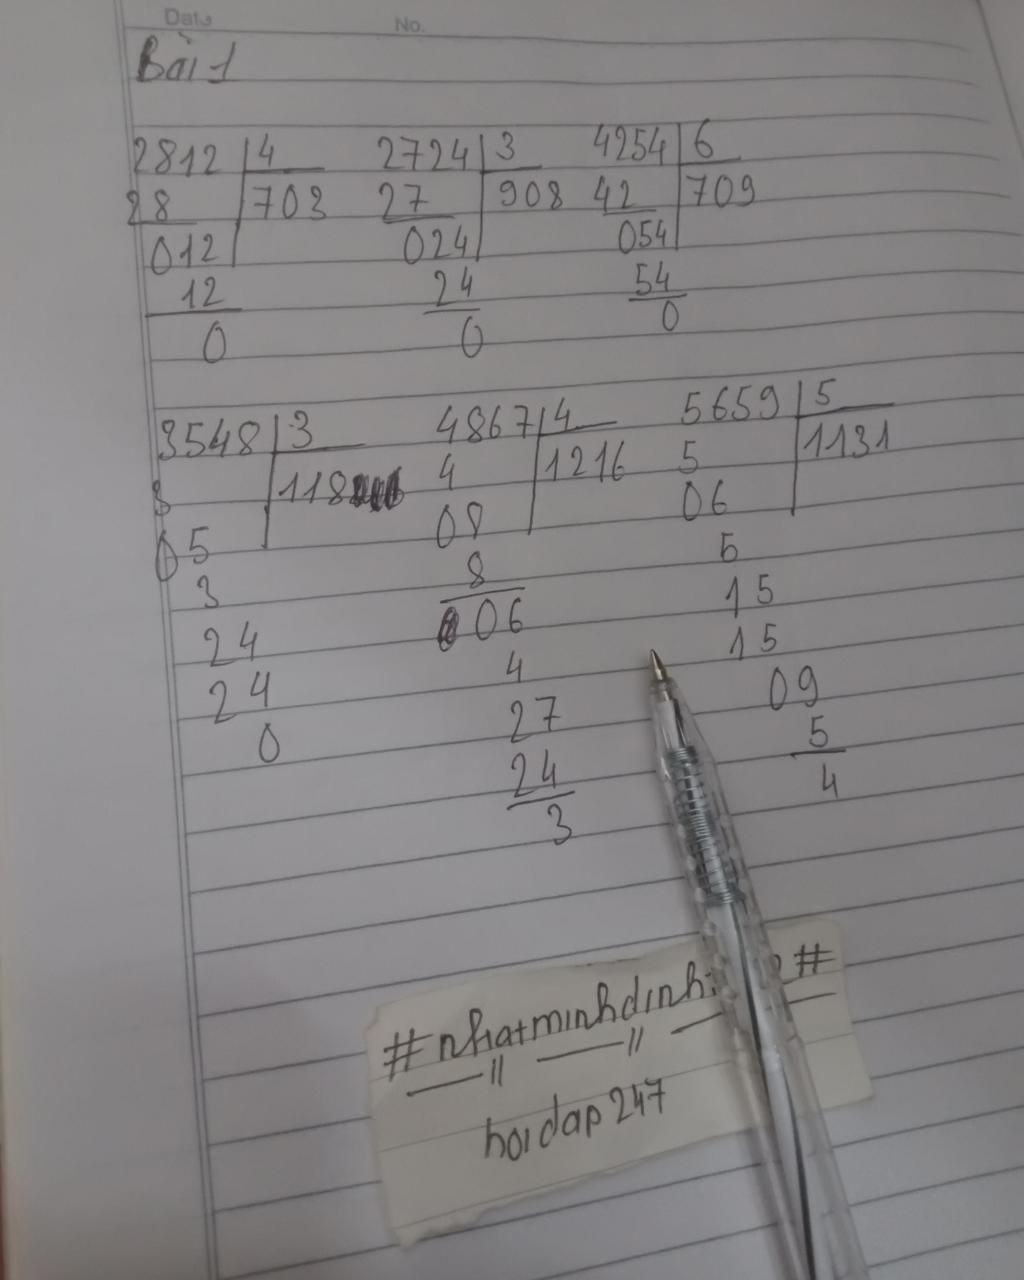 Date No.
Bài 1
2812 4 2724 3 4254 6
28 703 27 908 42 709
012 024 054
12 24 54
0 0 0
3548 3 4867 4 5659 5
3 118 4 1216 5 1131
05 08 06
3 8 5
24 06 15
24 4 15
0 27 09
24 5
3 4
#nhatminhdinh #
hoidap247